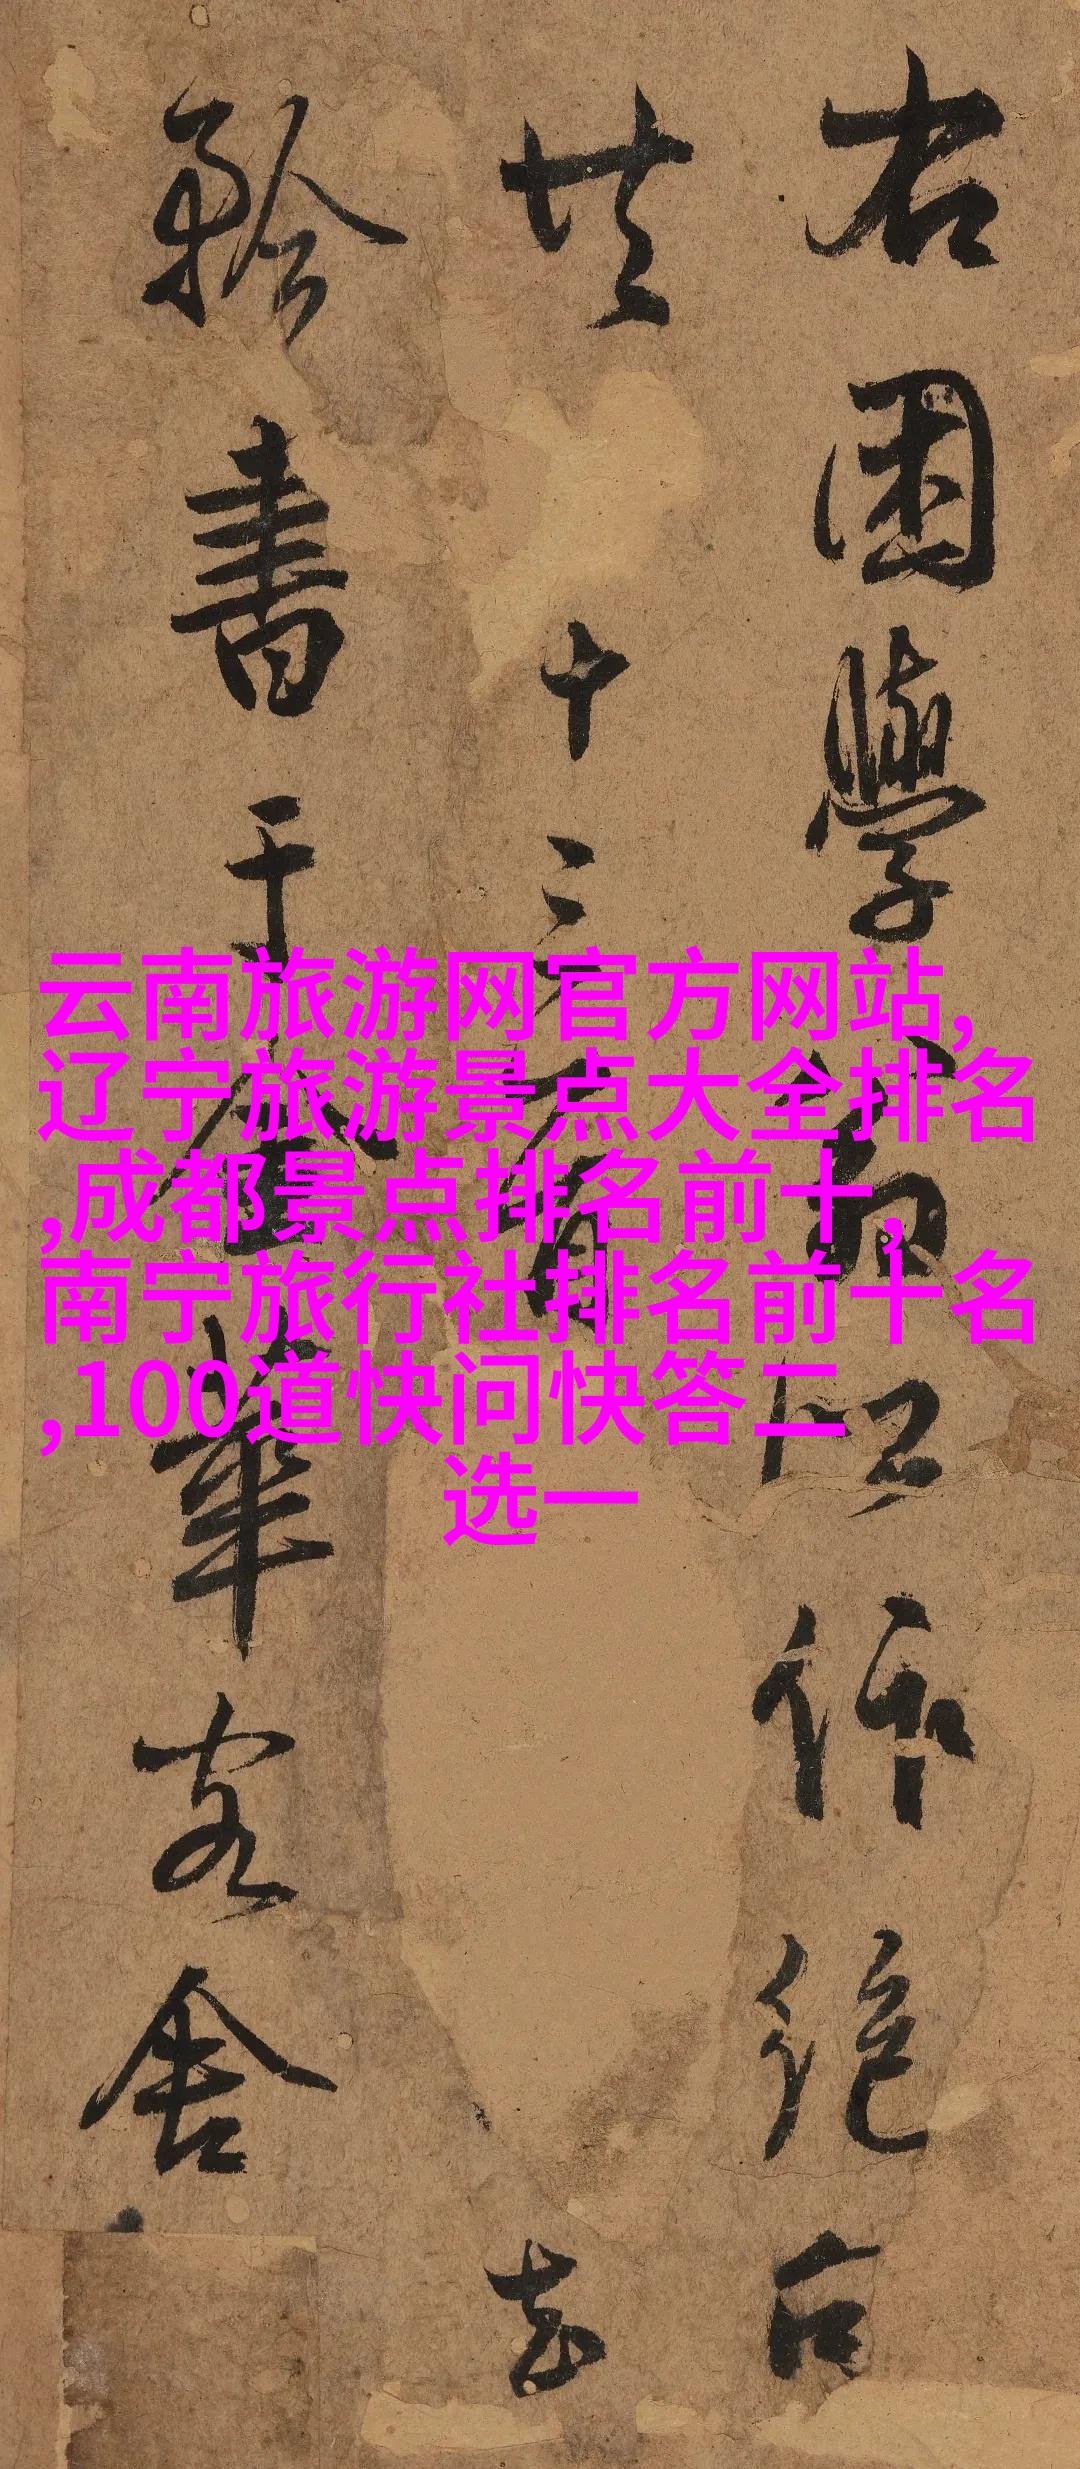 右困學作絕句
共十三
書于金華客舍
云南旅游网官方网站,
辽宁旅游景点大全排名
,成都景点排名前十,
南宁旅行社排名前十名
,100道快问快答二
选一